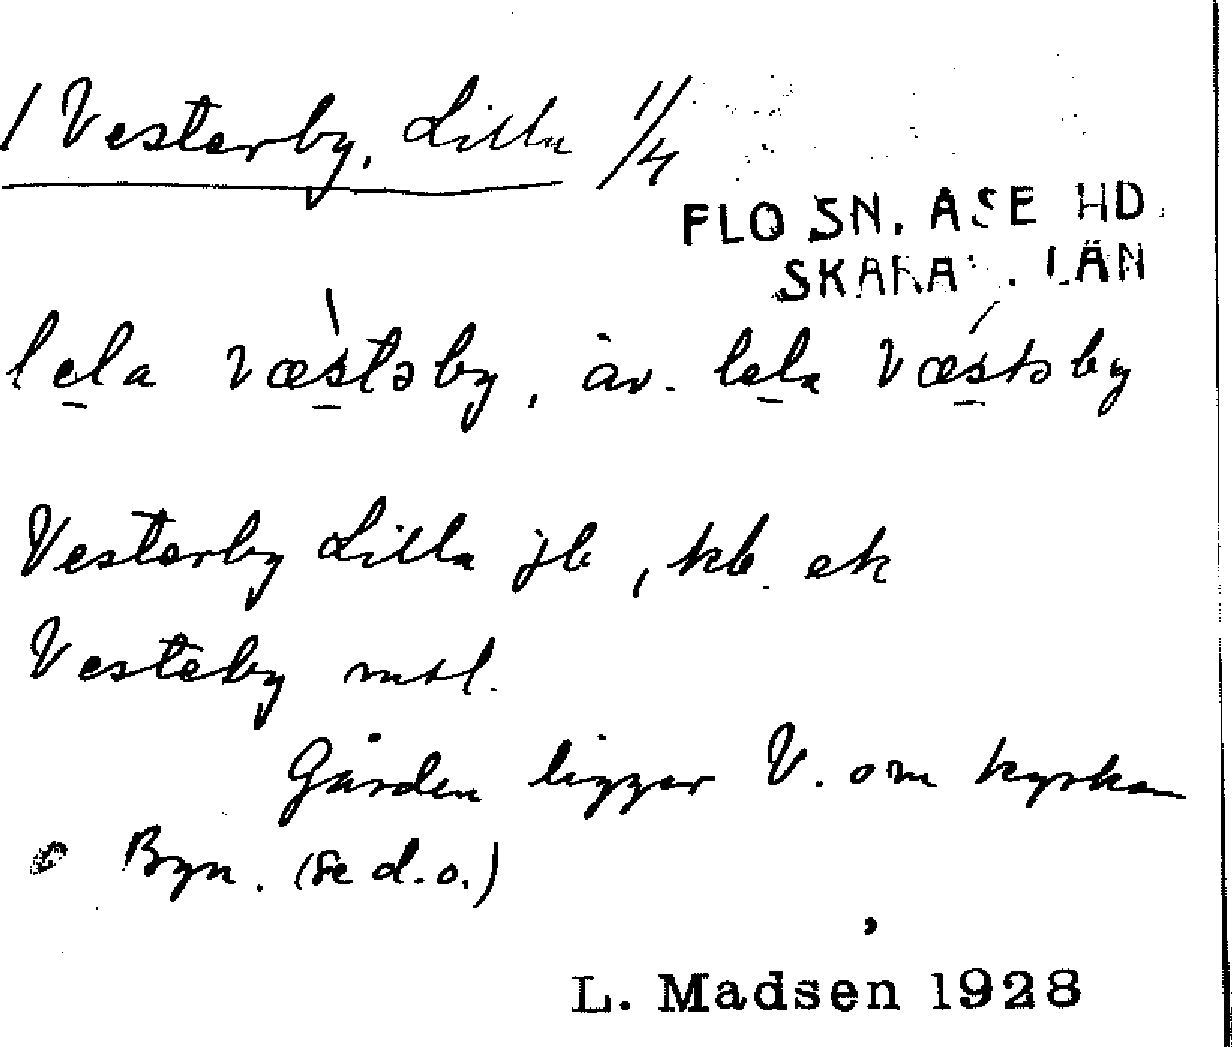 1 Vesterby, Lilla 1/4
FLO SN. ÅSE HD
SKARAB. LÄN
lela væstəby, äv. lela væstəby
Vesterby Lilla jb, kb. ek
Vesteby mtl.
Gården ligger V. om kyrkan
o Byn. (se d.o.)
L. Madsen 1928